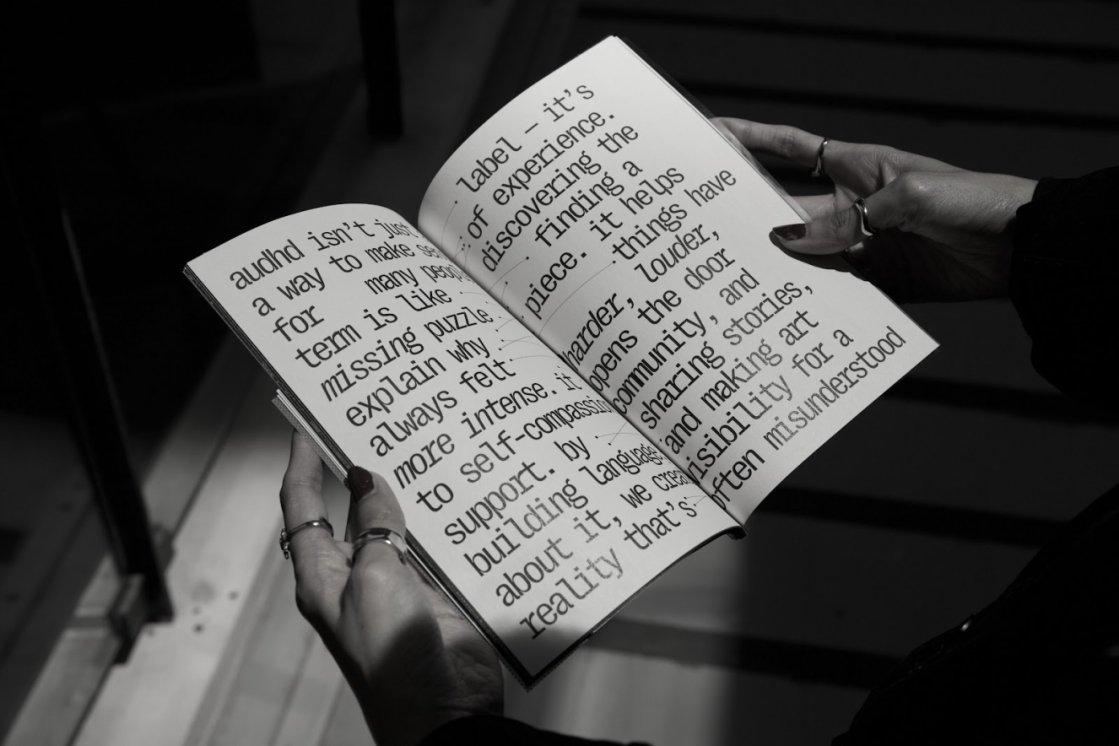 audhd isn't just label – it's
a way to make of experience.
for many people discovering the
term is like finding a
missing puzzle piece. it helps
explain why things have
always felt harder, louder,
more intense. it opens the door
to self-compassion community, and
support. by sharing stories,
building language and making art
about it, we create visibility for a
reality that's often misunderstood